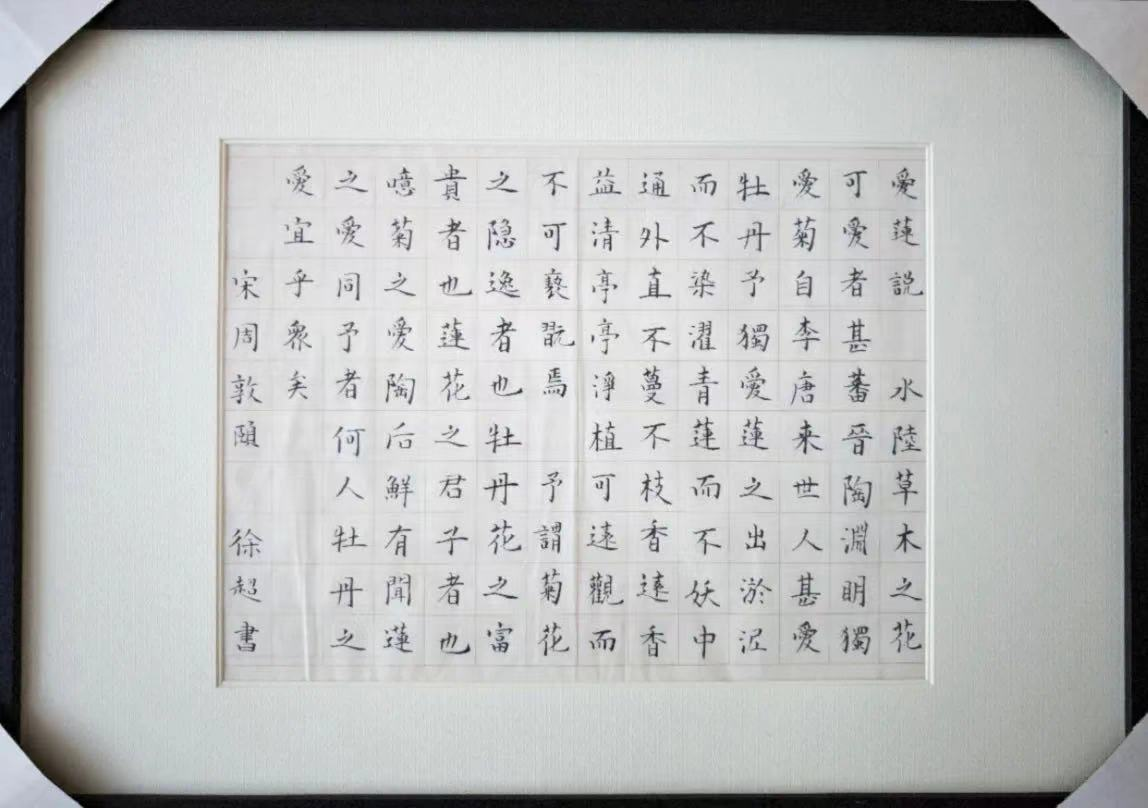 愛蓮説 水陸草木之花
可愛者甚蕃晉陶淵明獨
愛菊自李唐来世人甚愛
牡丹予獨愛蓮之出淤泥
而不染濯青蓮而不妖中
通外直不蔓不枝香遠香
益清亭亭淨植可遠觀而
不可褻翫焉 予謂菊花
之隐逸者也牡丹花之富
貴者也蓮花之君子者也
噫菊之愛陶后鮮有聞蓮
之愛同予者何人牡丹之
愛宜乎衆矣
宋周敦頤 徐超書